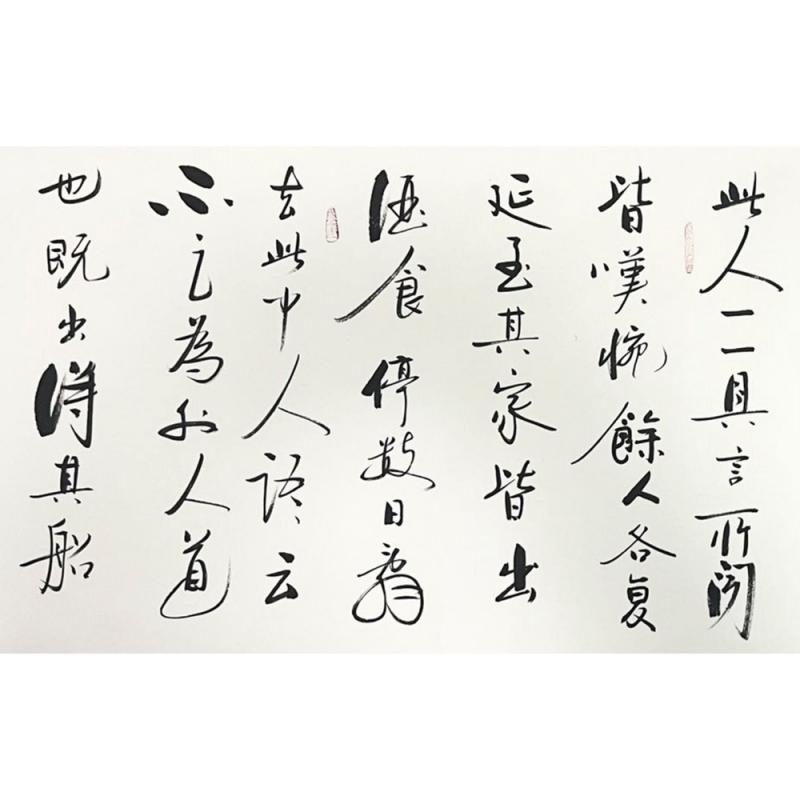 此人一一具言所聞
皆嘆惋餘人各复
延至其家皆出
酒食停数日辭
去此中人語云
不足為外人道
也既出得其船